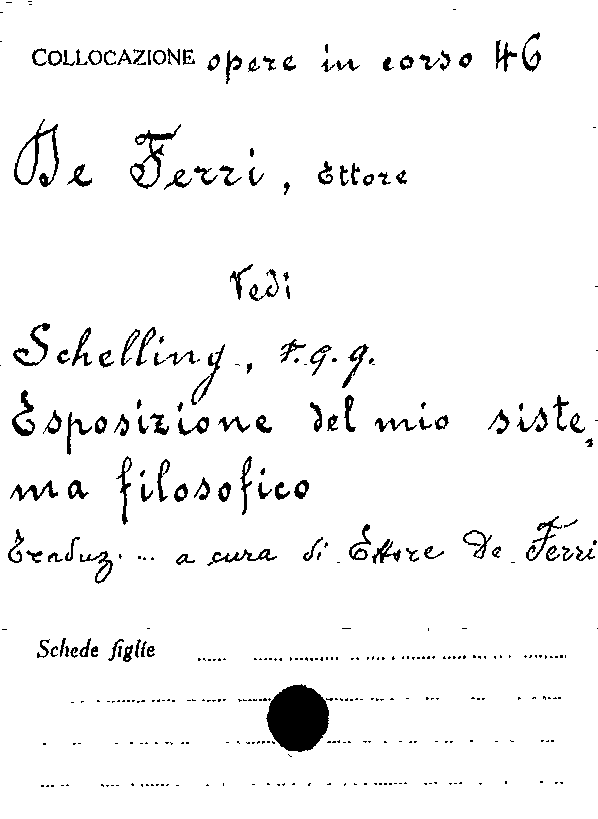 COLLOCAZIONE opere in corso 46
De Ferri, Ettore
Vedi
Schelling, F. g. g.
Esposizione del mio siste,
ma filosofico
Traduz. ... a cura di Ettore De Ferri
Schede figlie